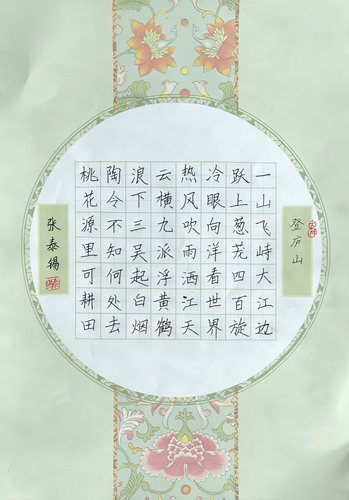 登庐山
一山飞峙大江边
跃上葱茏四百旋
冷眼向洋看世界
热风吹雨洒江天
云横九派浮黄鹤
浪下三吴起白烟
陶令不知何处去
桃花源里可耕田
张泰锡